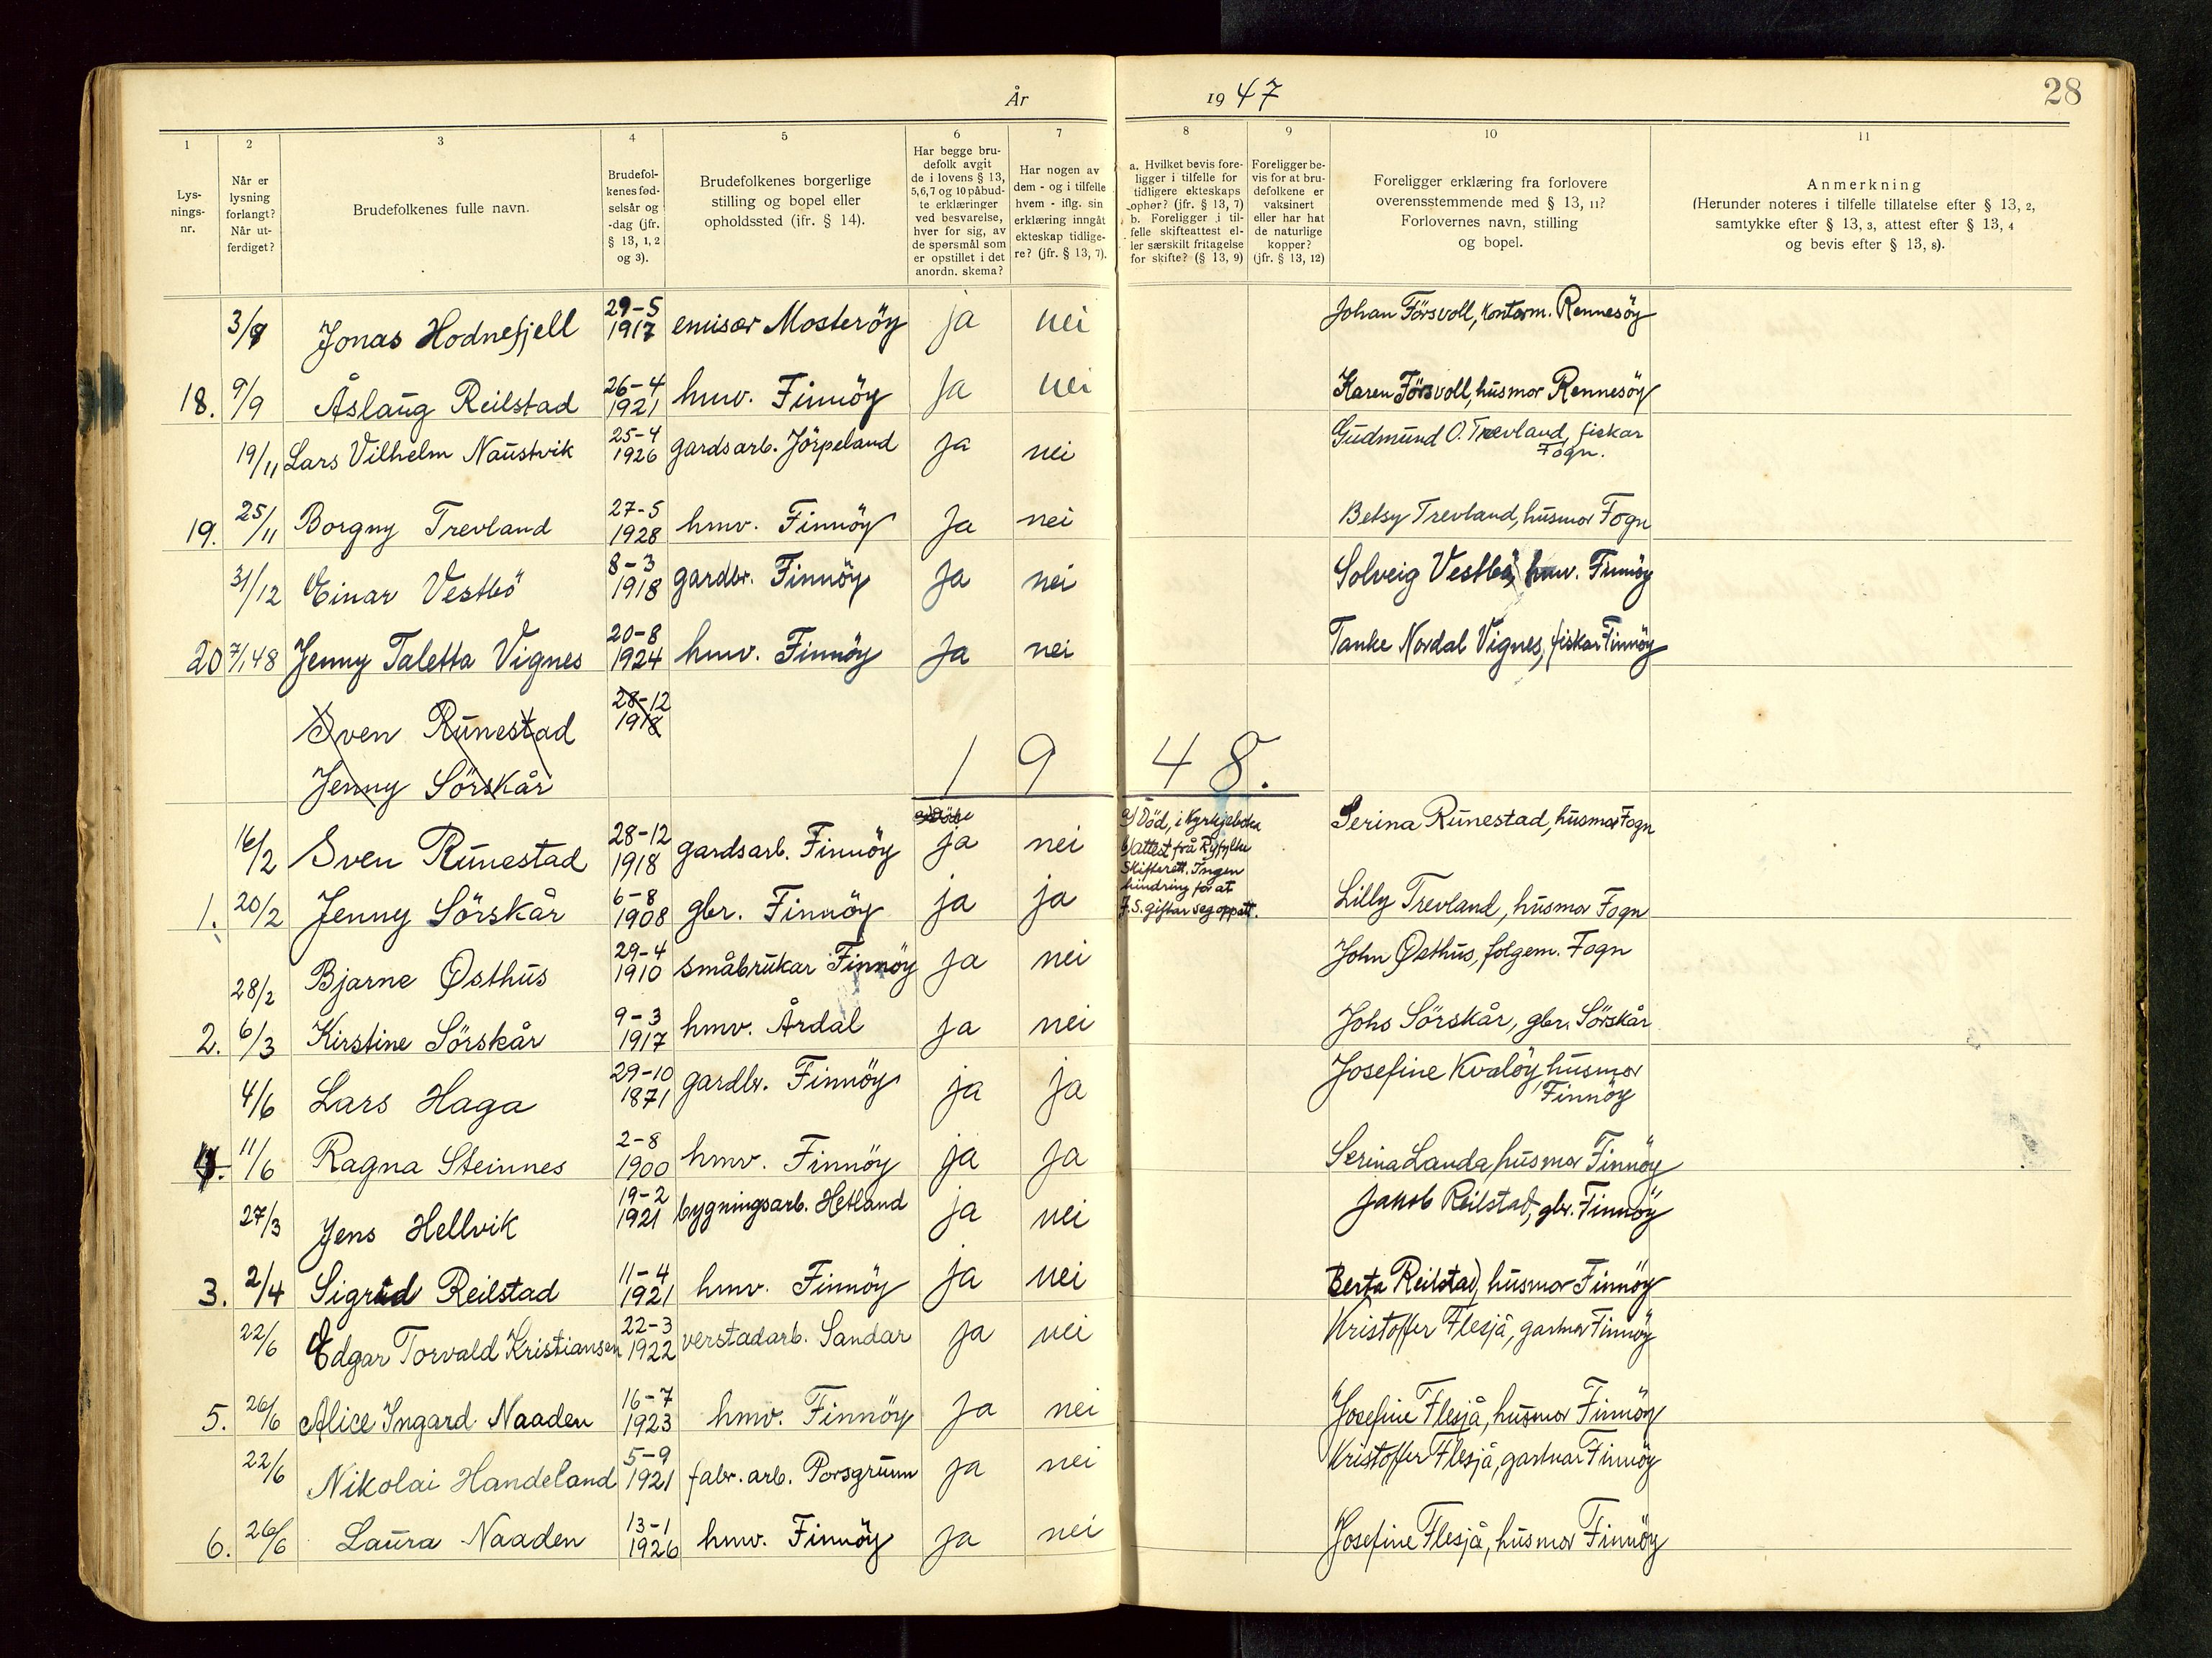 År 1947
28
1 2 3 4 5 6 7 8 9 10 11
Lys-
nings-
nr.
Når er
lysning
forlangt?
Når ut-
ferdiget?
Brudefolkenes fulle navn.
Brudefol-
kenes fød-
selsår og
-dag (jfr.
§ 13, 1, 2
og 3).
Brudefolkenes borgerlige
stilling og bopel eller
opholdssted (jfr. § 14).
Har begge bru-
defolk avgit
de i lovens § 13,
5,6,7 og 10 påbud-
te erklæringer
ved besvarelse,
hver for sig, av
de spørsmål som
er opstillet i det
anordn. skema?
Har nogen av
dem - og i tilfelle
hvem - iflg. sin
erklæring inngåt
ekteskap tidlige-
re? (jfr. § 13, 7).
a. Hvilket bevis fore-
ligger i tilfelle for
tidligere ekteskaps
ophør? (jfr. § 13, 7)
b. Foreligger i til-
felle skifteattest el-
ler særskilt fritagelse
for skifte? (§ 13, 9)
Foreligger be-
vis for at bru-
defolkene er
vaksinert
eller har hat
de naturlige
kopper?
(jfr. § 13, 12)
Foreligger erklæring fra forlovere
overensstemmende med § 13, 11?
Forlovernes navn, stilling
og bopel.
Anmerkning
(Herunder noteres i tilfelle tillatelse efter § 13, 2,
samtykke efter § 13, 3, attest efter § 13, 4
og bevis efter § 13, 8).
3/9 Jonas Hodnefjell 29-5 1917 emisær Mosteröy ja nei Johan Försvoll, kontorm. Rennesöy
18. 9/9 Åslaug Reilstad 26-4 1921 hmv. Finnöy ja nei Karen Försvoll, husmor Rennesöy
19/11 Lars Vilhelm Naustvik 25-4 1926 gardsarb. Jörpeland ja nei Gudmund O. Trevland, fiskar
Fogn.
19. 25/11 Borgny Trevland 27-5 1928 hmv. Finnöy ja nei Betsy Trevland, husmor Fogn
31/12 Einar Vestbö 8-3 1918 gardbr. Finnöy ja nei Solveig Vestbö, hmv. Finnöy
20 7/1 48 Jenny Taletta Vignes 20-8 1924 hmv. Finnöy ja nei Tanke Nordal Vignes, fiskar Finnöy
Sven Runestad 28-12 1918
Jenny Sörskår
1948.
16/2 Sven Runestad 28-12 1918 gardsarb. Finnöy ja nei Serina Runestad, husmor Fogn
a) Död, i Kyrkjeboka
b) attest frå Ryfylke
Skifterett. Ingen
hindring for at
J.S. giftar seg oppatt.
1. 20/2 Jenny Sörskår 6-8 1908 gbr. Finnöy ja ja Lilly Trevland, husmor Fogn
28/2 Bjarne Østhus 29-4 1910 småbrukar Finnöy ja nei John Østhus, folgem. Fogn
2. 6/3 Kirstine Sörskår 9-3 1917 hmv. Årdal ja nei Johs Sörskår, gbr. Sörskår
4/6 Lars Haga 29-10 1871 gardbr. Finnöy ja ja Josefine Kvalöy husmor
Finnöy
4. 11/6 Ragna Steinnes 2-8 1900 hmv. Finnöy ja ja Serina Landa husmor Finnöy
27/3 Jens Hellvik 19-2 1921 bygningsarb. Hetland ja nei Jakob Reilstad, gbr. Finnöy
3. 2/4 Sigrid Reilstad 11-4 1921 hmv. Finnöy ja nei Berta Reilstad, husmor Finnöy
22/6 Edgar Torvald Kristiansen 22-3 1922 verstadarb. Sandar ja nei Kristoffer Flesjå, gartnar Finnöy
5. 26/6 Alice Ingard Naaden 16-7 1923 hmv. Finnöy ja nei Josefine Flesjå, husmor Finnöy
22/6 Nikolai Handeland 5-9 1921 fabr. arb. Porsgrunn ja nei Kristoffer Flesjå, gartnar Finnöy
6. 26/6 Laura Naaden 13-1 1926 hmv. Finnöy ja nei Josefine Flesjå, husmor Finnöy